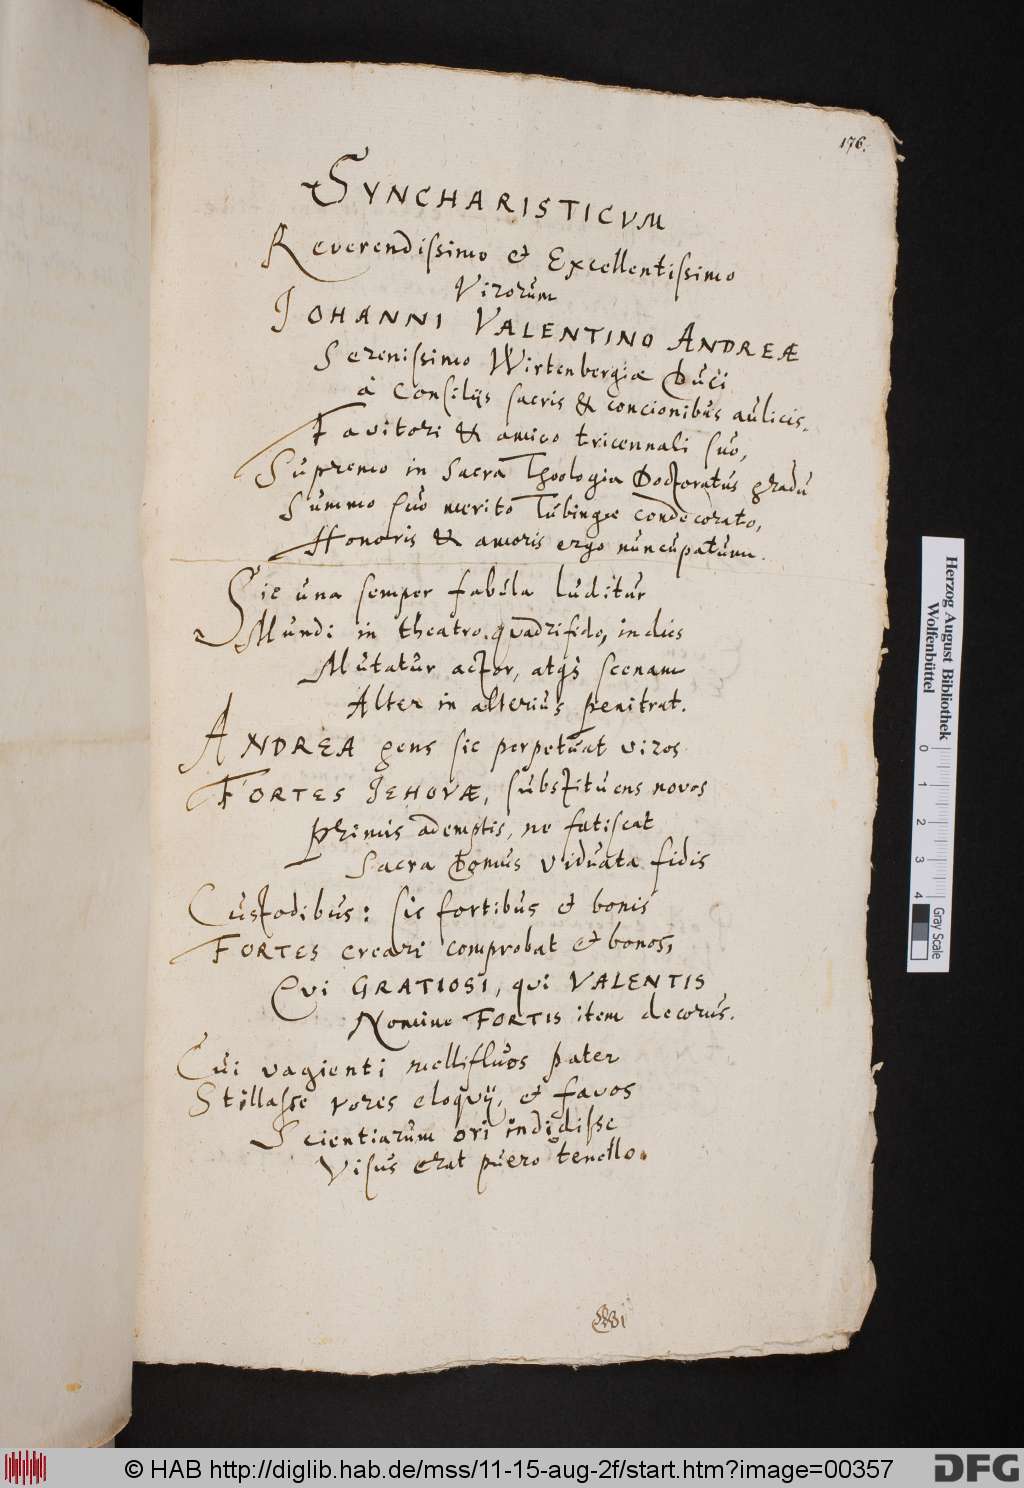 176.
SYNCHARISTICVM
Reverendissimo et Excellentissimo
Virorum
JOHANNI VALENTINO ANDREÆ
Serenissimo Wirtenbergiæ Duci
à Consilijs sacris & concionibus aulicis,
Favitori & amico tricennali suo,
Supremo in Sacra Theologia Doctoratus gradu
Summo suo merito Tubingæ condecorato,
Honoris & amoris ergo nuncupatum.
Sic una semper fabula luditur
Mundi in theatro quadrifido, indies
Mutatur actor, atqs scenam
Alter in alterius penitrat.
ANDREA gens sic perpetuat viros
FORTES JEHOVÆ, substituens novos
Primis ademptis, ne fatiscat
Sacra Domus viduata fidis
Custodibus: sic fortibus et bonis
FORTES creari comprobat et bonos,
Qui GRATIOSI, qui VALENTIS
Nomine FORTIS item decorus.
Cui vagienti mellifluos pater
Stillasse rores eloquij, et favos
Scientiarum ori indidisse
Visus erat puero tenello.
Herzog August Bibliothek
Wolfenbüttel
0 1 2 3 4
Gray Scale
© HAB http://diglib.hab.de/mss/11-15-aug-2f/start.htm?image=00357
DFG